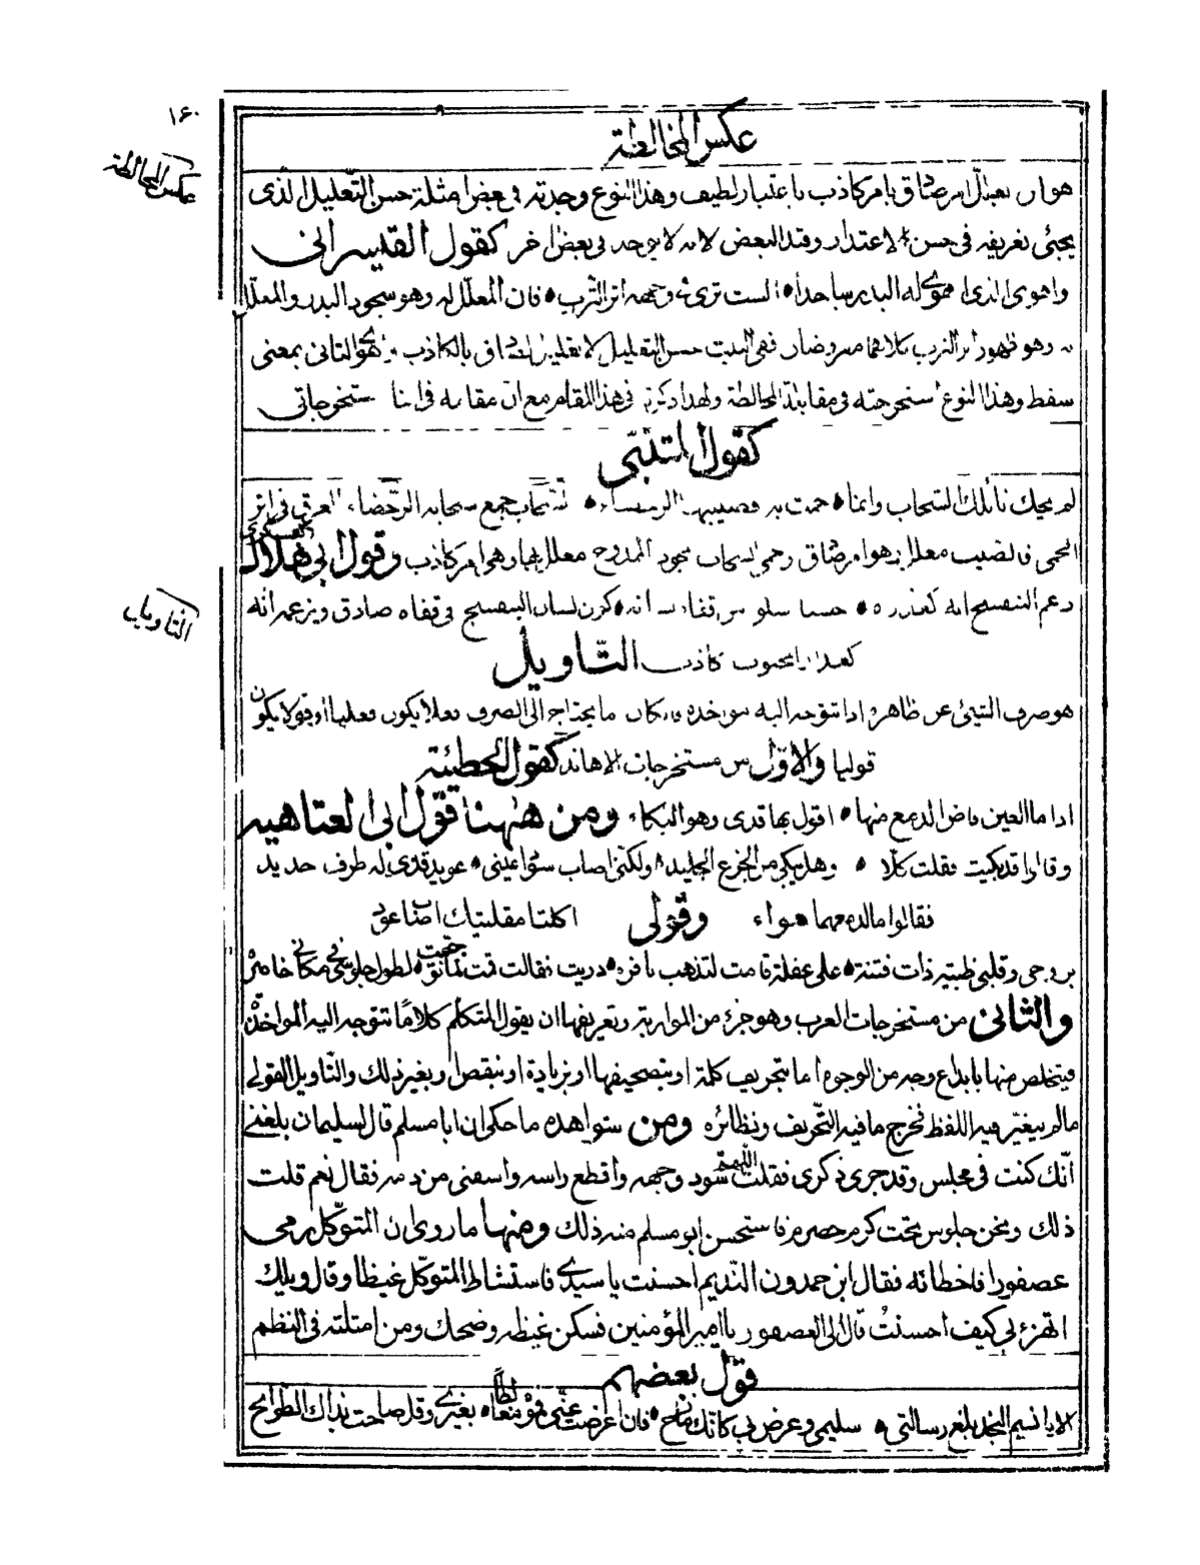 ١٦٠
عكس المخالطة
عكس المخالطة
هو ان يعلل امر صادق بامر كاذب باعتبار لطيف وهذا النوع وجدته فى بعض امثلة حسن التعليل الذى
يجيئ تعريفه فى حسن الاعتذار وقيد البعض لانه لا يوجد فى بعض اخر كقول القيسرانى
واهوى الذى اهوى له البدر ساجدا • الست ترى فى وجهه اثر الترب • فان المعلل له وهو سجود البدر والمعلل
به وهو ظهور اثر الترب كلاهما مفروضان ففى البيت حسن التعليل لا تعليل الصادق بالكاذب الثانى بمعنى
سقط وهذا النوع استخرجته فى مقابلة المخالطة ولهذا ذكرته فى هذا المقام مع ان مقامه مستخرجاتى
كقول المتنبّى
لم يحك نائلك السحاب وانما • حمت به فصبيبها الرحضاء • السحاب جمع سحابة الرحضاء العرق فى اثر
الحمى فالصبيب معلل به وهو امر صادق وحمى السحاب بجود الممدوح معلل بها وهى امر كاذب وقول ابى هلال
العسكرى
زعم البنفسج انه كعذاره • حسنا سلوا من قفاه لسانه • كون لسان البنفسج فى قفاه صادق وزعمه انه
التأويل
كعذار المحبوب كاذب التّأويل
هو صرف الشيئ عن ظاهره اذا تتوجه اليه مواخذة فان كان ما يحتاج الى الصرف فعلا يكون فعليا او قولا يكون
قوليا والاوّل من مستخرجات الاهاند كقول الحطيئة
اذا ما العين فاض الدمع منها • اقول بها قذى وهو البكاء ومن ههنا قول ابى العتاهيه
وقالوا قد بكيت فقلت كلّا • وهل يبكى من الجزع الجليد • ولكنى اصاب سواد عينى • عويد قذى له طرف حديد
فقالوا ما لدمعهما سواء اكلتا مقلتيك اصاب عود وقولى
بروحى وقلبى ظبية ذات فتنة • على غفلة قامت لتذهب بافره • دريت فقالت قمت • لطول جلوسى فى مكانى خامره
والثانى من مستخرجات العرب وهو جزء من المواربة وتعريفها ان يقول المتكلم كلامًا تتوجه اليه المواخذة
فيتخلص منها بابدع وجه من الوجوه اما بتحريف كلمة او بتصحيفها او بزيادة او بنقص او بغير ذلك والتاويل القولى
مالم يغيّر فيه اللفظ فخرج ما فيه التحريف ونظائره ومن شواهده ما حكى ان ابا مسلم قال لسليمان بلغنى
انّك كنت فى مجلس وقد جرى ذكرى فقلت اللهمّ سوّد وجهه واقطع راسه واسقنى من دمه فقال نعم قلت
ذلك ونحن جلوس تحت كرم حصرم فاستحسن ابو مسلم منه ذلك ومنها ما روى ان المتوكل رمى
عصفورا فاخطاته فقال ابن حمدون النديم احسنت يا سيدى فاستشاط المتوكل غيظا وقال ويلك
اتهزئ بى كيف احسنتُ قال الى العصفور يا امير المؤمنين فسكن غيظه وضحك ومن امثلته فى النظم
قول بعضهم
الا يا نسيم النجد بلغ رسالتى • سليمى وعرض بى كانّك مازح • فان اعرضت عنّى فموّه مغالطًا • بغيرى وقل صاحت بذاك الطوايح